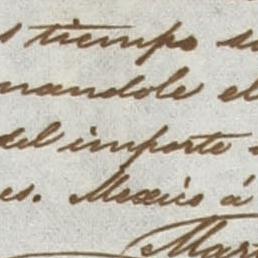 s tiempo se
nandole el
del importe
es. Mexico á
Mar